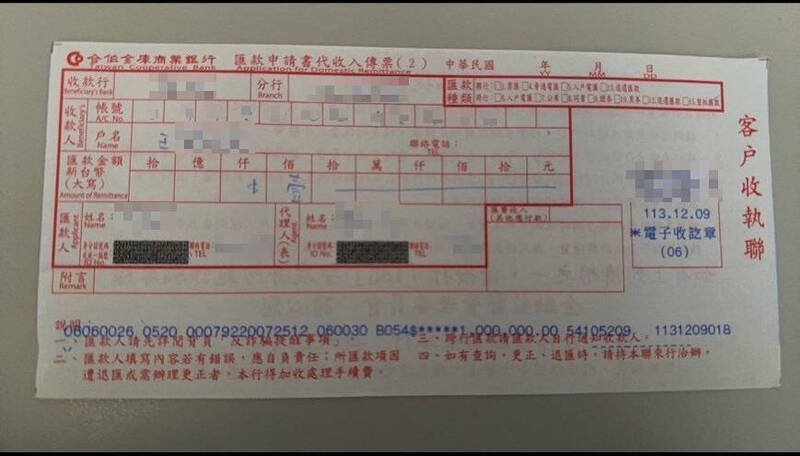 合作金庫商業銀行 匯款申請書代收入傳票(2) 中華民國 年 月 日
Taiwan Cooperative Bank Application for Domestic Remittance YY MM DD
收款行 分行 匯款種類
Beneficiary's Bank Branch
收款人 帳號
Beneficiary's A/C No.
戶名 聯絡電話:
Name TEL
匯款金額 新台幣 (大寫) 拾 億 仟 佰 拾 萬 仟 佰 拾 元
Amount of Remittance
匯款人 姓名: 代理人(表) 姓名: 匯費收入
Applicant Name Agent Name (其他應付款)
ID No. TEL ID No. TEL
附言
Remark
113.12.09
*電子收訖章
(06)
客戶收執聯
說明:
06060026 0520 00079220072512 060030 B054$*****1,000,000.00 54105209 1131209018
一、匯款人請先詳閱背頁「反詐騙提醒事項」。
二、匯款人填寫內容若有錯誤,應自負責任;所匯款項因
遭退匯或需辦理更正者,本行得加收處理手續費。
三、跨行匯款請匯款人自行通知收款人。
四、如有查詢、更正、退匯時,請持本聯來行洽辦。